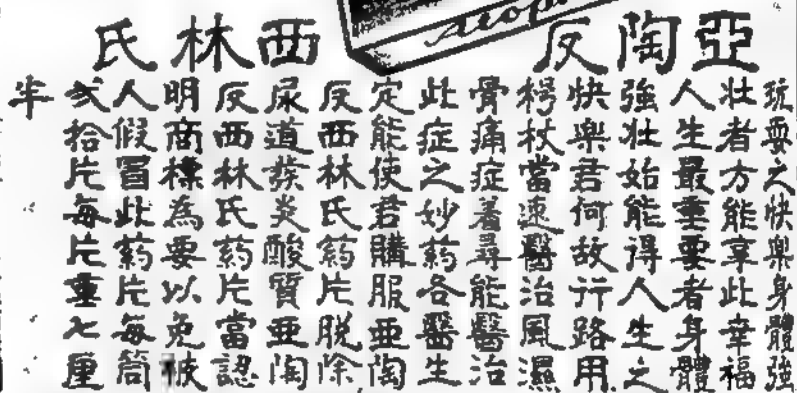 亞陶反西林氏
玩耍之快樂身體強
壯者方能享此幸福
人生最重要者身體
強壯始能得人生之
快樂君何故行路用
枴杖當速醫治風濕
骨痛症着尋能醫治
此症之妙葯各醫生
定能使君購服亞陶
反西林氏葯片脫除
尿道發炎酸質亞陶
反西林氏葯片當認
明商標為要以免被
人假冒此葯片每筒
弍拾片每片重七厘
半